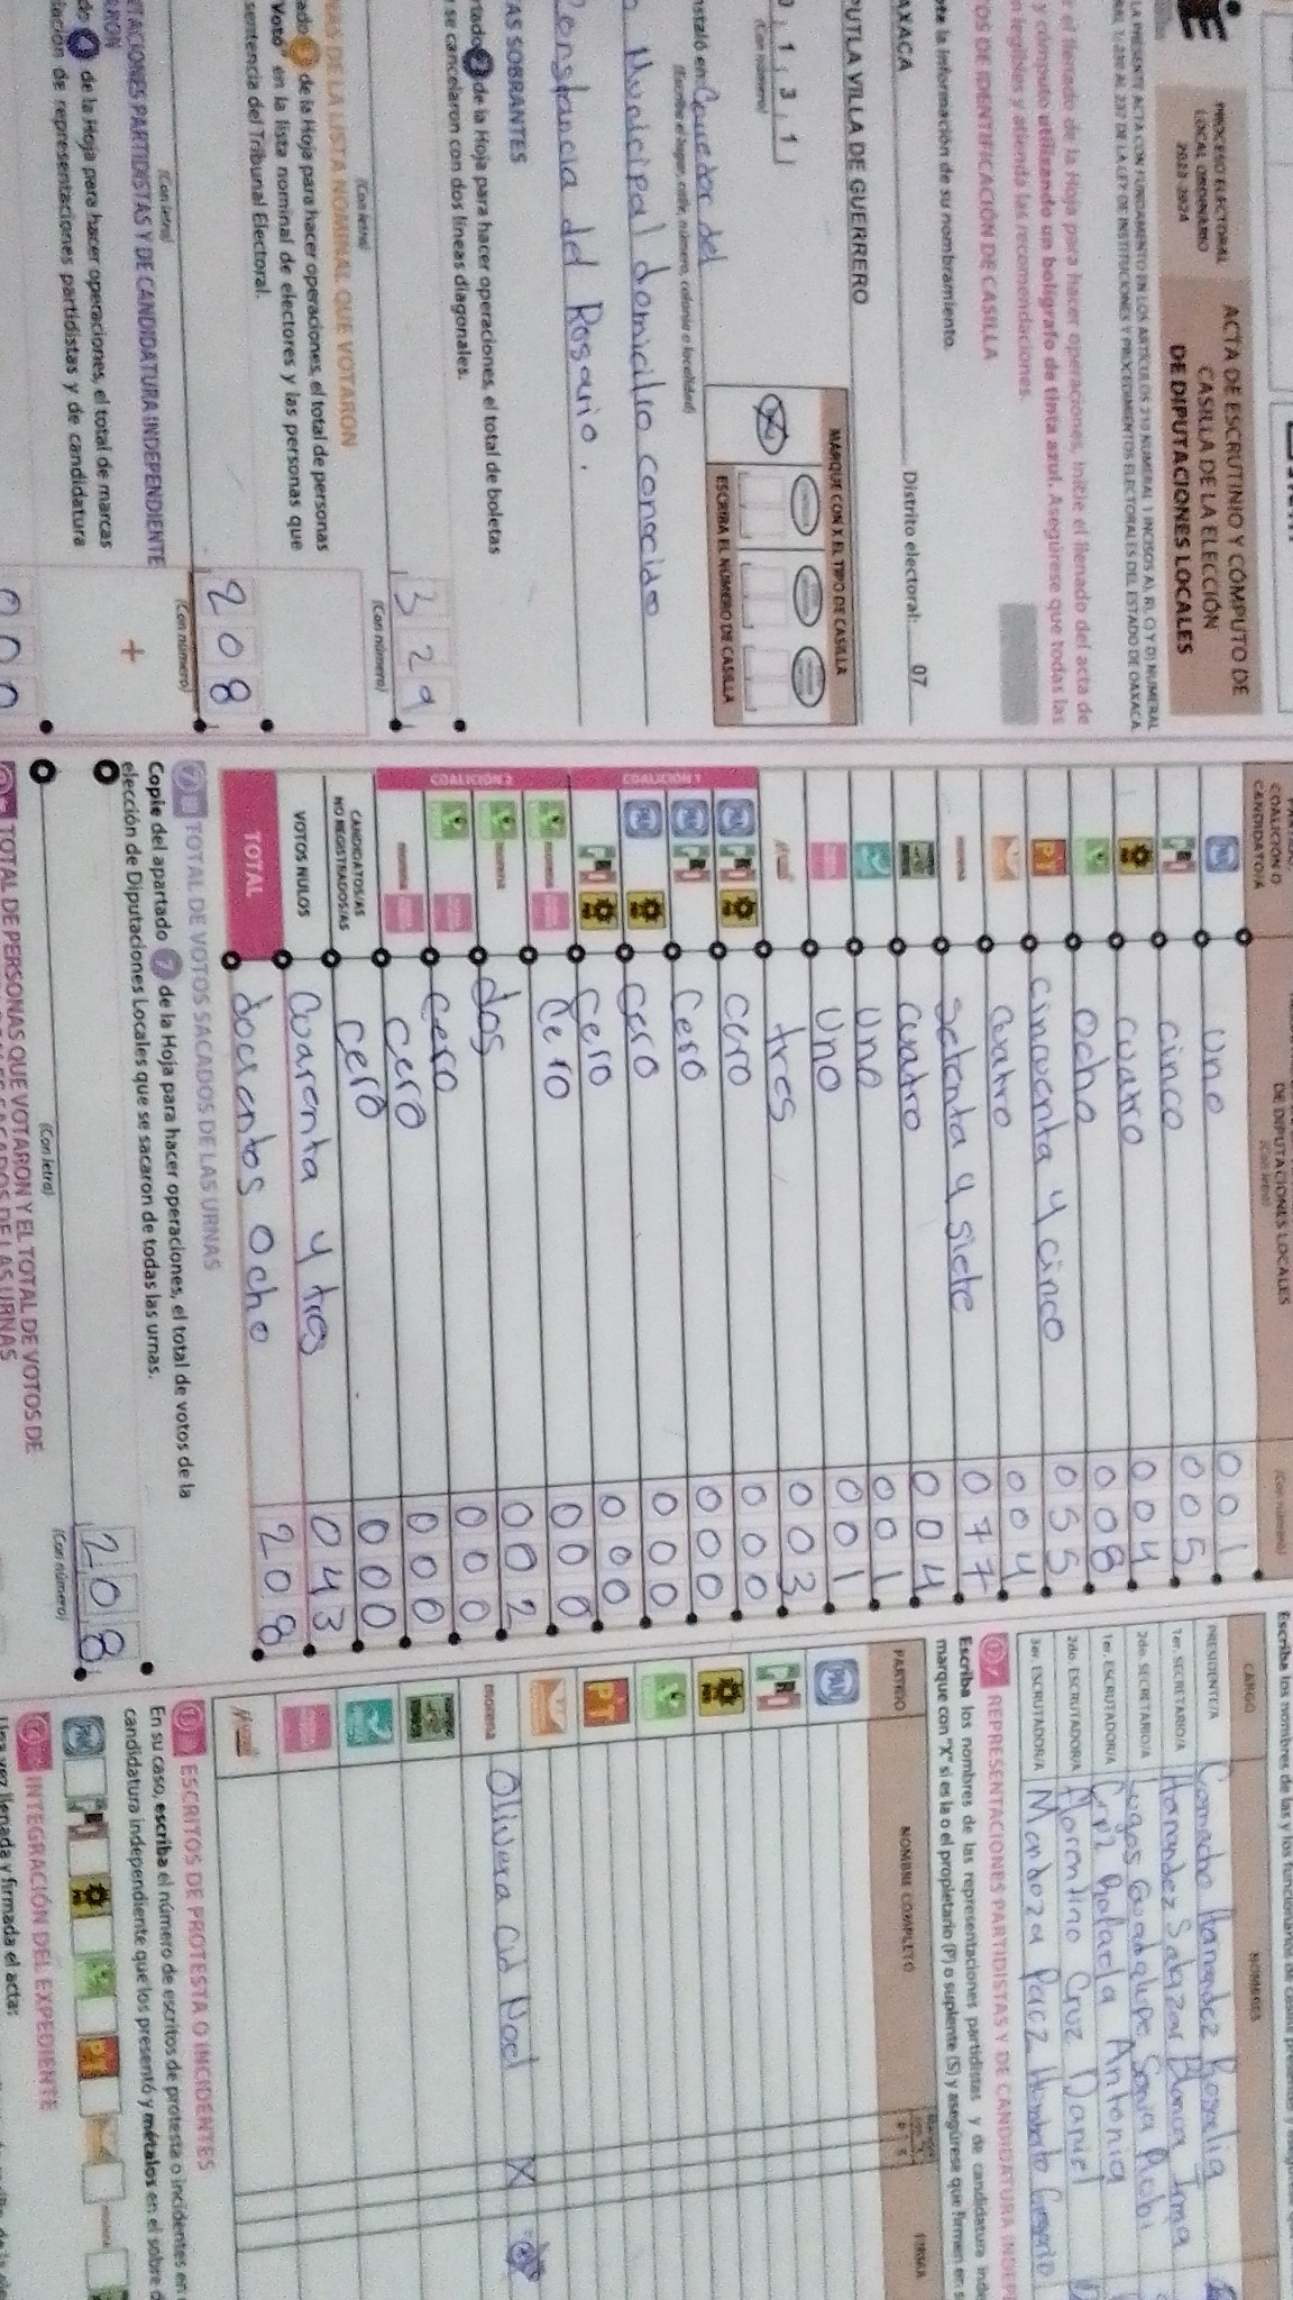 PROCESO ELECTORAL
LOCAL ORDINARIO
2023-2024
ACTA DE ESCRUTINIO Y CÓMPUTO DE
CASILLA DE LA ELECCIÓN
DE DIPUTACIONES LOCALES
LA PRESENTE ACTA CON FUNDAMENTO EN LOS ARTÍCULOS
el llenado de la Hoja para hacer operaciones, inicie el llenado del acta de
y cómputo utilizando un bolígrafo de tinta azul. Asegúrese que todas las
n legibles y atienda las recomendaciones.
OS DE IDENTIFICACIÓN DE CASILLA
la información de su nombramiento.
AXACA Distrito electoral: 07
PUTLA VILLA DE GUERRERO
1 3 1
(Con número)
MARQUE CON X EL TIPO DE CASILLA
ESCRIBA EL NÚMERO DE CASILLA
nstaló en: Corredor del
(Escriba el lugar, calle, número, colonia o localidad)
Municipal domicilio conocido
Constancia del Rosario.
AS SOBRANTES
de la Hoja para hacer operaciones, el total de boletas
se cancelaron con dos líneas diagonales.
329
(Con letra) (Con número)
NAS DE LA LISTA NOMINAL QUE VOTARON
de la Hoja para hacer operaciones, el total de personas
Votó" en la lista nominal de electores y las personas que
sentencia del Tribunal Electoral.
208
(Con letra) (Con número)
TACIONES PARTIDISTAS Y DE CANDIDATURA INDEPENDIENTE
RON
do 4 de la Hoja para hacer operaciones, el total de marcas
lación de representaciones partidistas y de candidatura
+
000
COALICIÓN O
CANDIDATO/A
DE DIPUTACIONES LOCALES
(Con letra) (Con número)
PAN Uno 001
PRI cinco 005
PRD cuatro 004
Ocho 008
PT cincuenta y cinco 055
cuatro 004
morena setenta y siete 077
cuatro 004
Uno 001
Uno 001
tres 003
COALICIÓN 1
cero 000
cero 000
cero 000
cero 000
COALICIÓN 2
cero 000
dos 002
cero 000
cero 000
CANDIDATOS/AS
NO REGISTRADOS/AS cero 000
VOTOS NULOS Cuarenta y tres 043
TOTAL docientos Ocho 208
7 TOTAL DE VOTOS SACADOS DE LAS URNAS
Copie del apartado 7 de la Hoja para hacer operaciones, el total de votos de la
elección de Diputaciones Locales que se sacaron de todas las urnas.
208
(Con letra) (Con número)
TOTAL DE PERSONAS QUE VOTARON Y EL TOTAL DE VOTOS DE
SACADOS DE LAS URNAS
Escriba los nombres de las y los funcionarios de casilla
CARGO NOMBRES
PRESIDENTE/A Camacho Hernandez Rosalia
1er. SECRETARIO/A Hernandez Salazar Blanca Irma
2do. SECRETARIO/A Lugos Guadalupe Sonia
1er. ESCRUTADOR/A Cruz Rafaela Antonia
2do. ESCRUTADOR/A Florentino Cruz Daniel
3er. ESCRUTADOR/A Mendoza Paez Humberto Gregorio
12 REPRESENTACIONES PARTIDISTAS Y DE CANDIDATURA INDEP
Escriba los nombres de las representaciones partidistas y de candidatura inde
marque con "X" si es la o el propietario (P) o suplente (S) y asegúrese que firmen en s
PARTIDO NOMBRE COMPLETO FIRMA
PAN
PRI
PRD
PT
morena Olivera Cid Noel X
ESCRITOS DE PROTESTA O INCIDENTES
En su caso, escriba el número de escritos de protesta o incidentes en
candidatura independiente que los presentó y métalos en el sobre d
INTEGRACIÓN DEL EXPEDIENTE
Una vez llenada y firmada el acta: